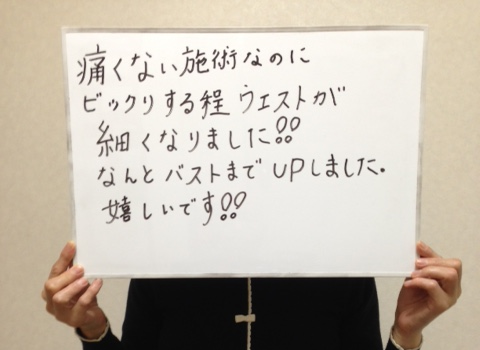 痛くない施術なのに
ビックリする程 ウエストが
細くなりました!!
なんと バストまで UPしました。
嬉しいです!!